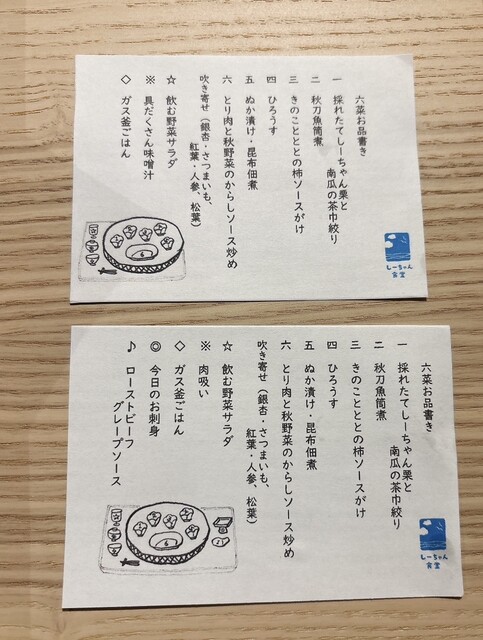 六菜お品書き
一 採れたてしーちゃん栗と
南瓜の茶巾絞り
二 秋刀魚筒煮
三 きのこととの柿ソースがけ
四 ひろうす
五 ぬか漬け・昆布佃煮
六 とり肉と秋野菜のからしソース炒め
吹き寄せ（銀杏・さつまいも、
紅葉・人参、松葉）
☆ 飲む野菜サラダ
※ 具だくさん味噌汁
◇ ガス釜ごはん
しーちゃん
食堂
六菜お品書き
一 採れたてしーちゃん栗と
南瓜の茶巾絞り
二 秋刀魚筒煮
三 きのこととの柿ソースがけ
四 ひろうす
五 ぬか漬け・昆布佃煮
六 とり肉と秋野菜のからしソース炒め
吹き寄せ（銀杏・さつまいも、
紅葉・人参、松葉）
☆ 飲む野菜サラダ
※ 肉吸い
◇ ガス釜ごはん
◎ 今日のお刺身
♪ ローストビーフ
グレープソース
しーちゃん
食堂